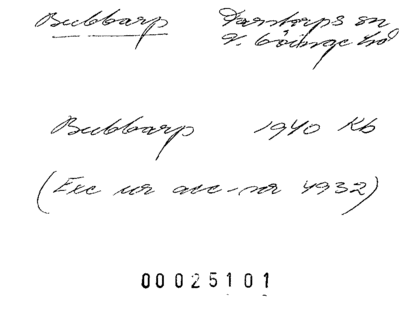 Bubbarp Farstorps sn
V. Göinge hd
Bubbarp 1940 Kb
(Exc ur acc-nr 4932)
00025101